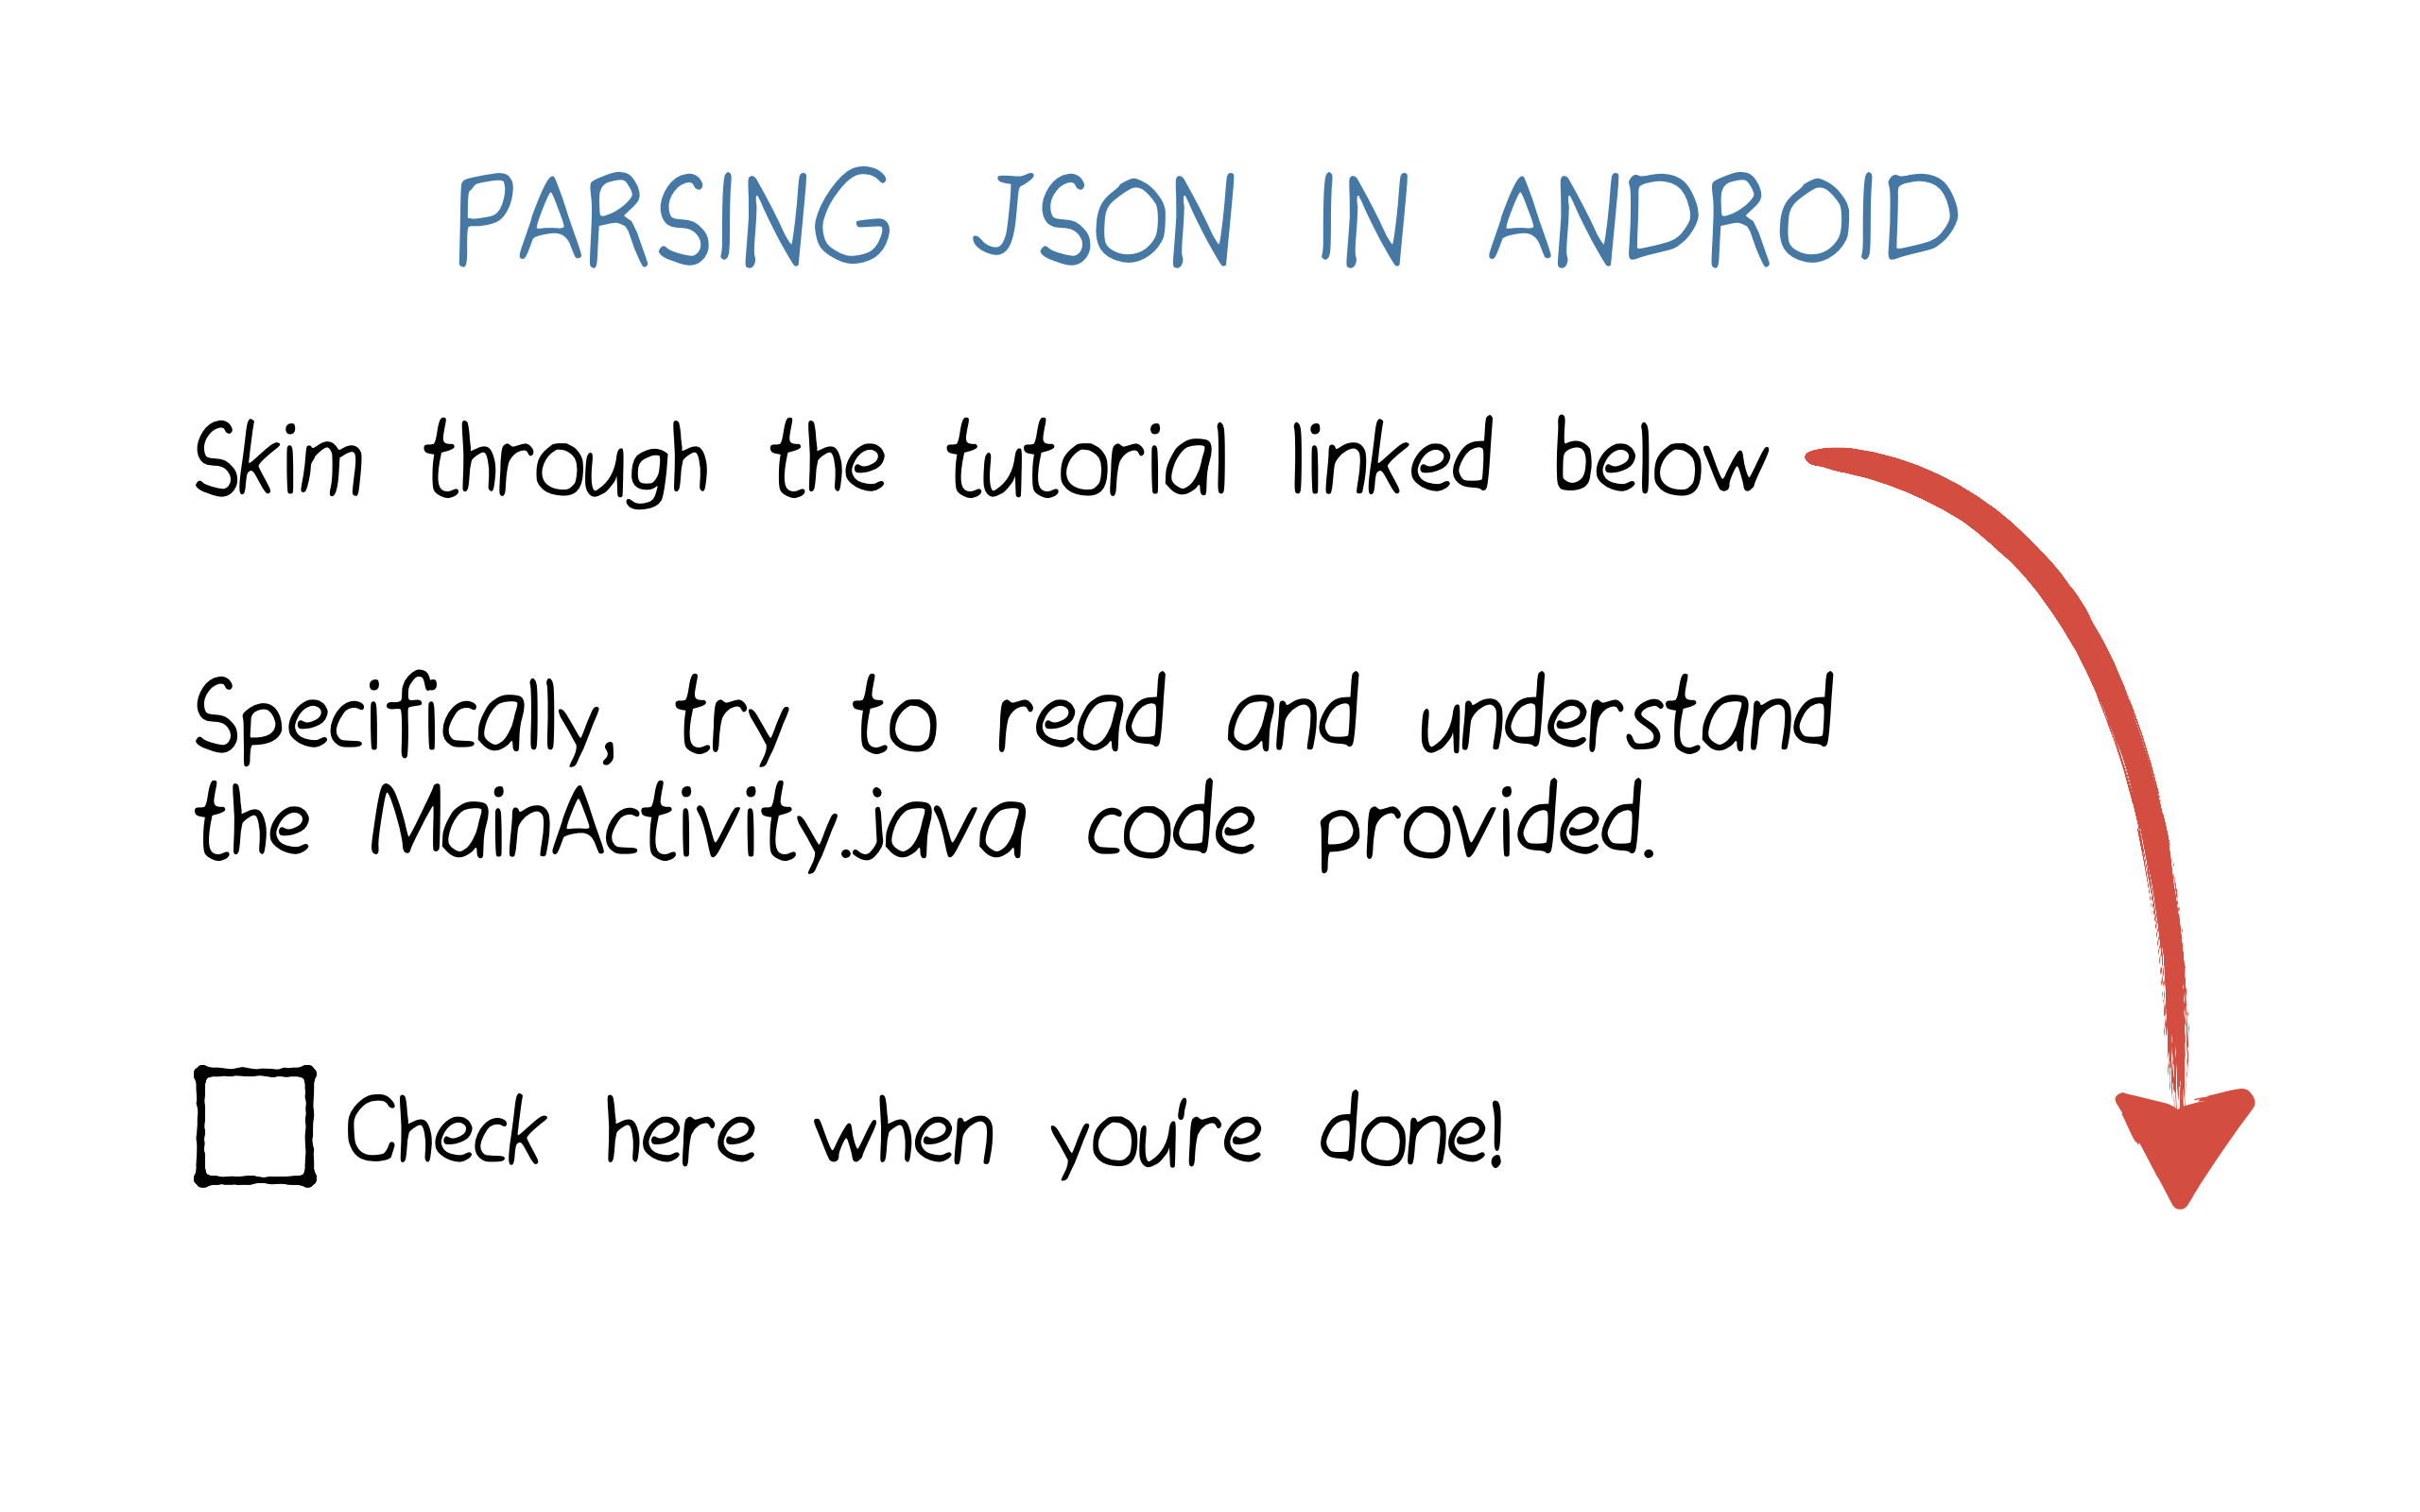 PARSING JSON IN ANDROID
Skim through the tutorial linked below
Specifically, try to read and understand
the MainActivity.java code provided.
Check here when you're done!